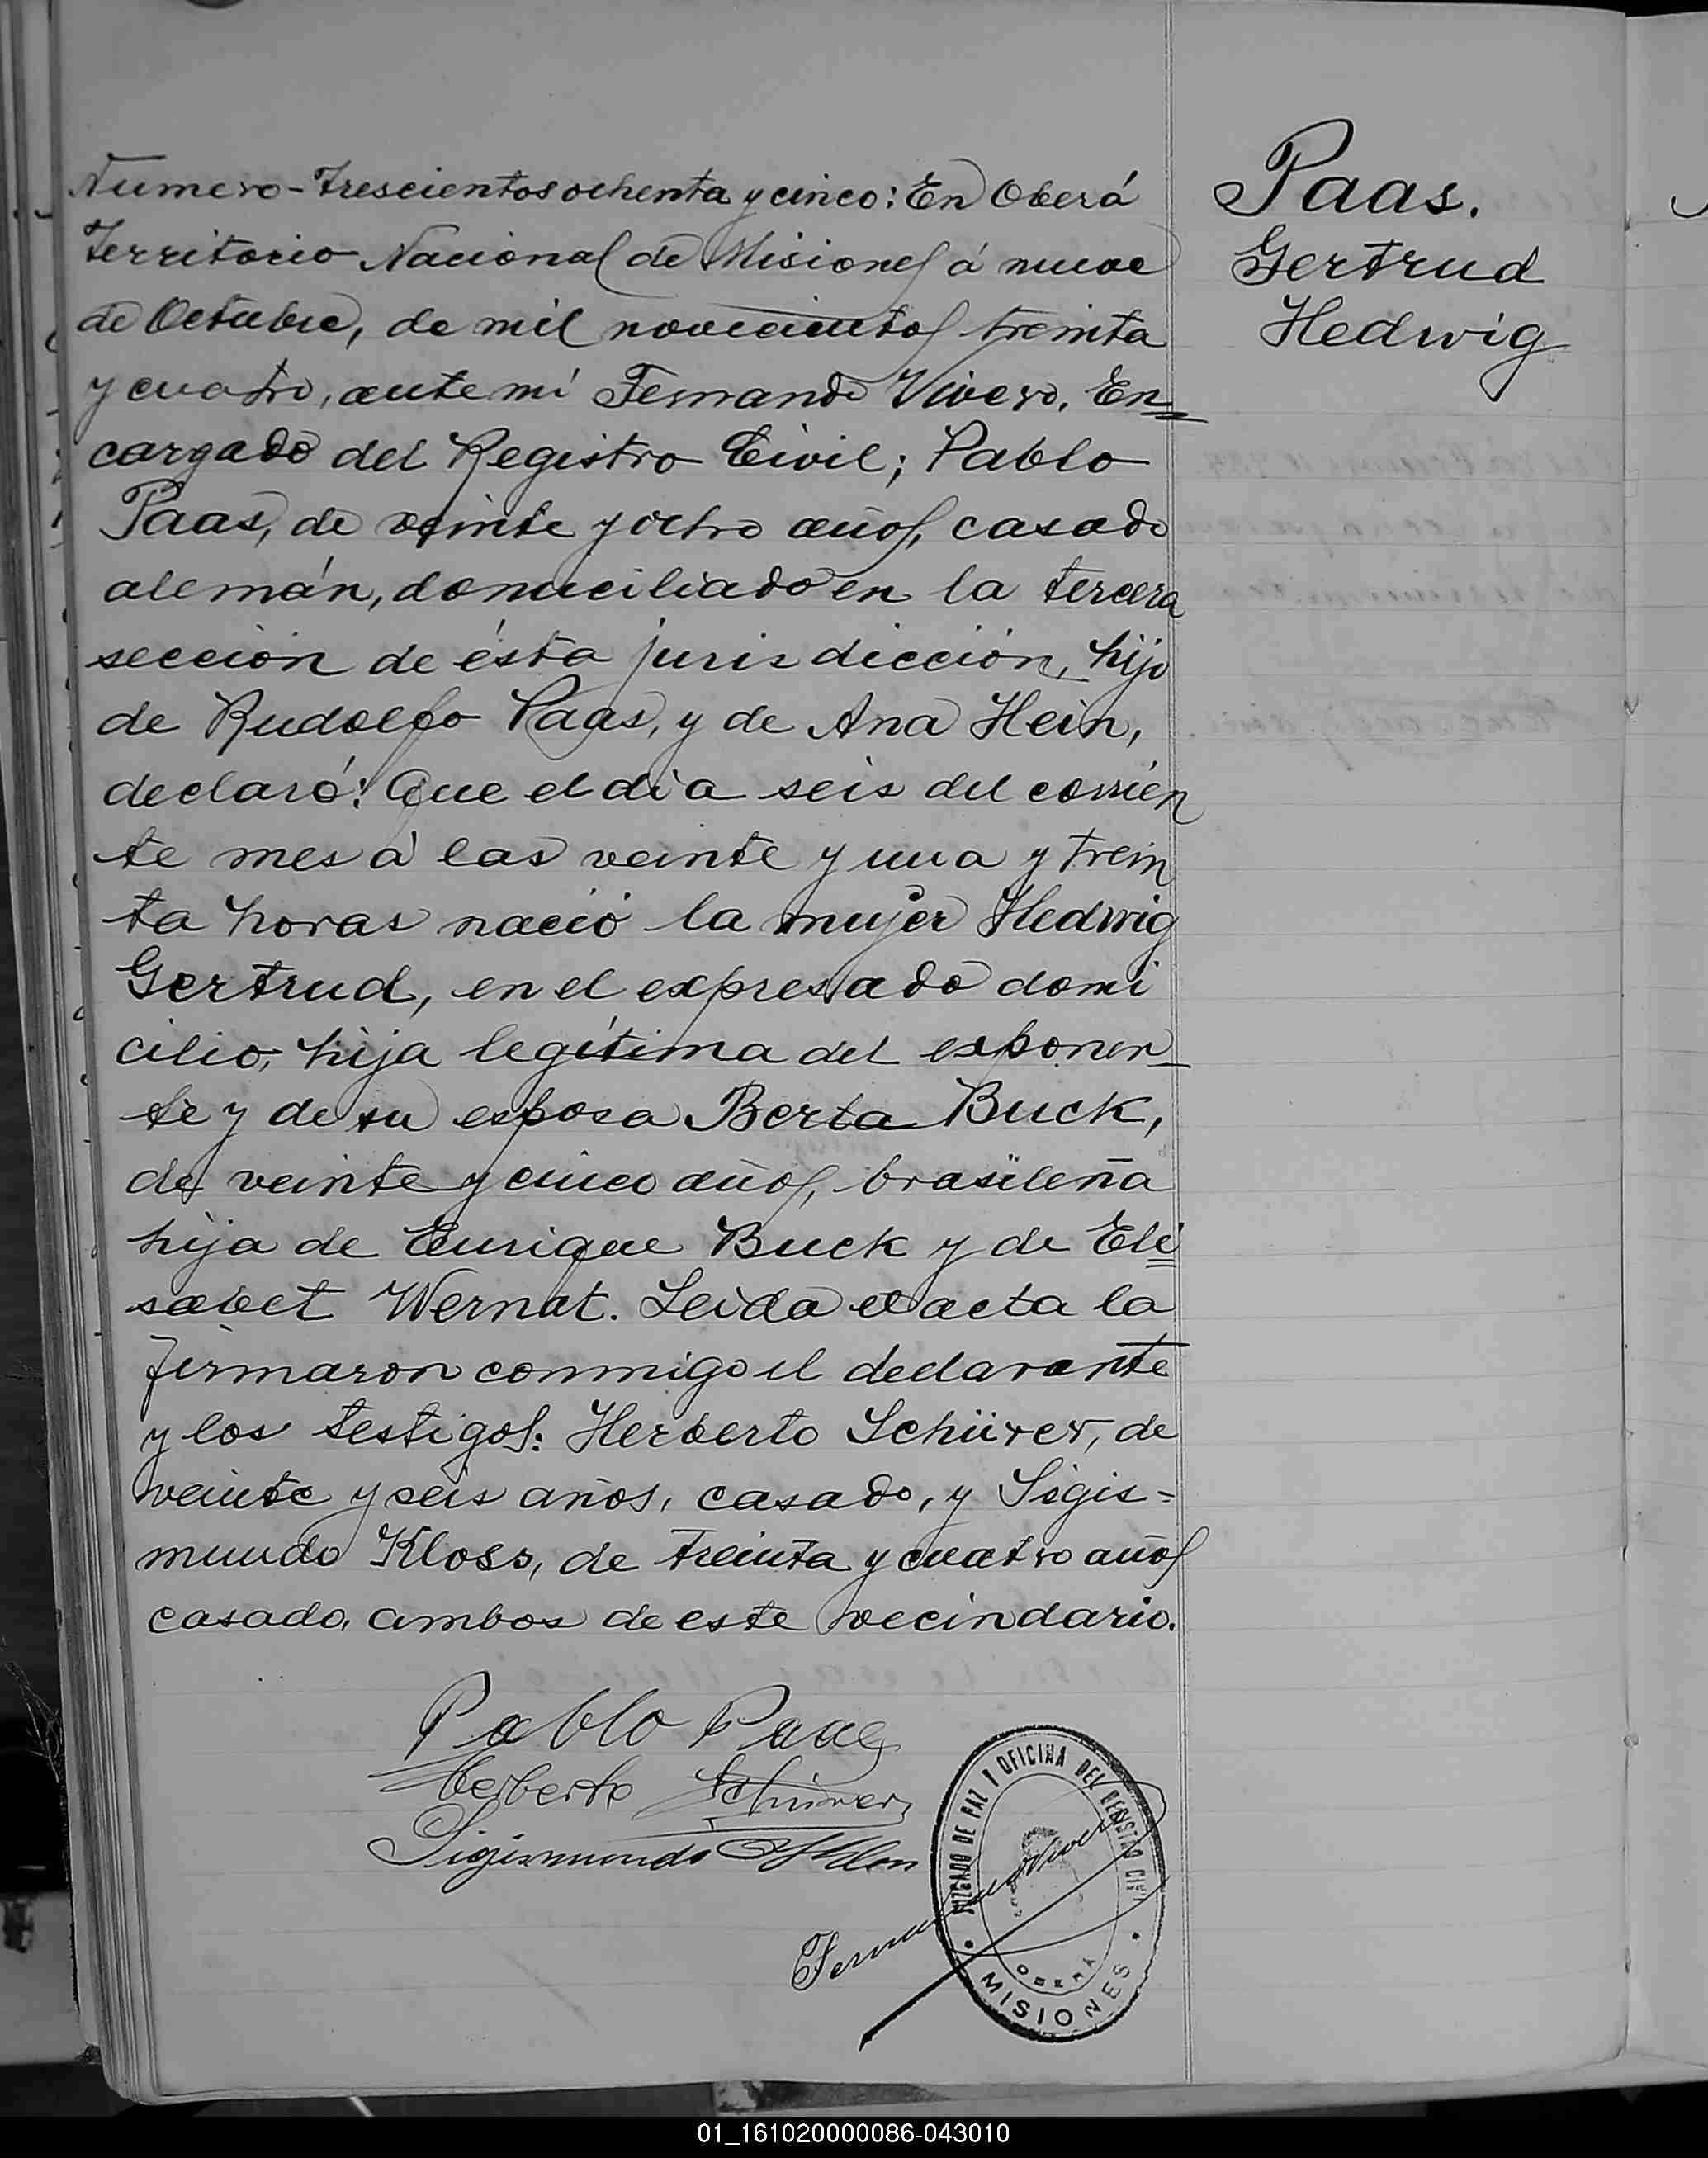 Numero-Trescientos ochenta y cinco: En Oberá
Territorio Nacional de Misiones á nueve
de Octubre, de mil novecientos treinta
y cuatro, ante mi Fernando Vivero, En=
cargado del Registro Civil; Pablo
Paas, de veinte y ocho años, casado
alemán, domiciliado en la tercera
sección de ésta jurisdicción, hijo
de Rudolfo Paas, y de Ana Hein,
declaró: Que el dia seis del corrien
te mes á las veinte y una y trein
ta horas nació la mujer Hedwig
Gertrud, en el expresado domi
cilio, hija legítima del exponen-
te y de su esposa Berta Buck,
de veinte y cinco años, brasileña
hija de Enrique Buck y de Eli=
sabet Wernat. Leida el acta la
firmaron conmigo el declarante
y los testigos: Herberto Schürer, de
veinte y seis años, casado, y Sigis=
mundo Kloss, de treinta y cuatro años
casado, ambos de este vecindario.
Paas.
Gertrud
Hedwig
Pablo Paas
Herberto Schürer
Sigismundo Kloss
Fernando Vivero
JUZGADO DE PAZ Y OFICINA DEL REGISTRO CIVIL
OBERÁ
• MISIONES •
01_161020000086-043010